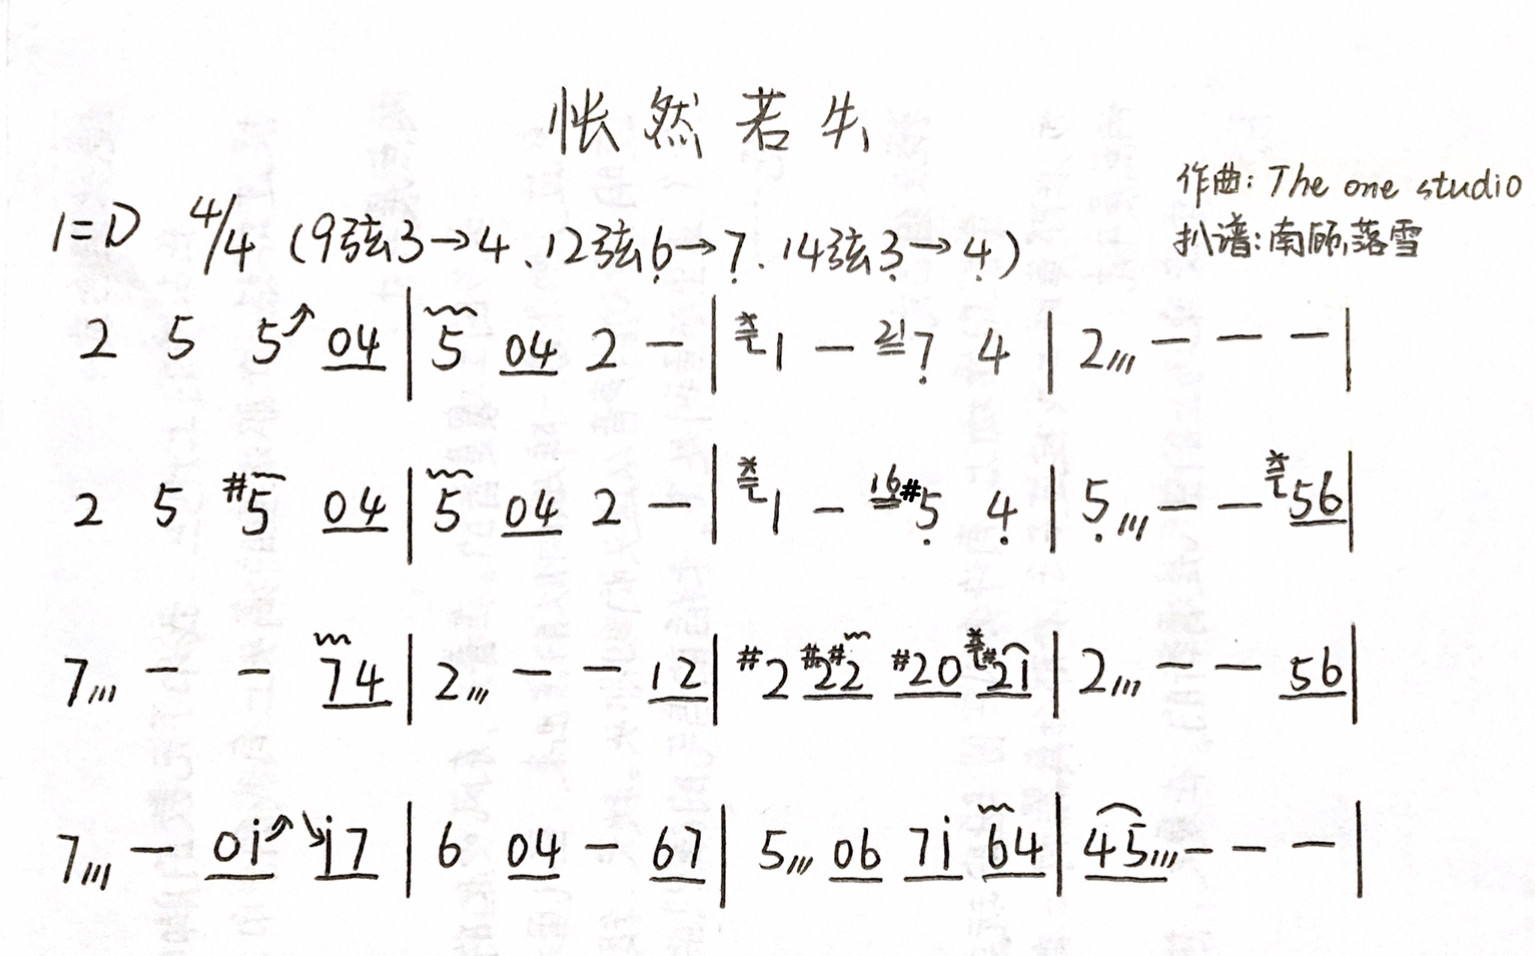 怅然若失
作曲: The one studio
1=D 4/4 (9弦3→4、12弦6̣→7̣、14弦3̣→4̣)
扒谱:南顾落雪
2 5 5↗ 04 | 5 04 2 — | 1 — 21 7̣ 4 | 2/// — — — |
2 5 #5 04 | 5 04 2 — | 1 — 16 #5̣ 4̣ | 5̣/// — — 56 |
7/// — — 74 | 2/// — — 12 | #2 #2#2 #20 #21 | 2/// — — 56 |
7/// — 0i↗ ↘i7 | 6 04 — 67 | 5/// 06 7i 64 | 45/// — — — |